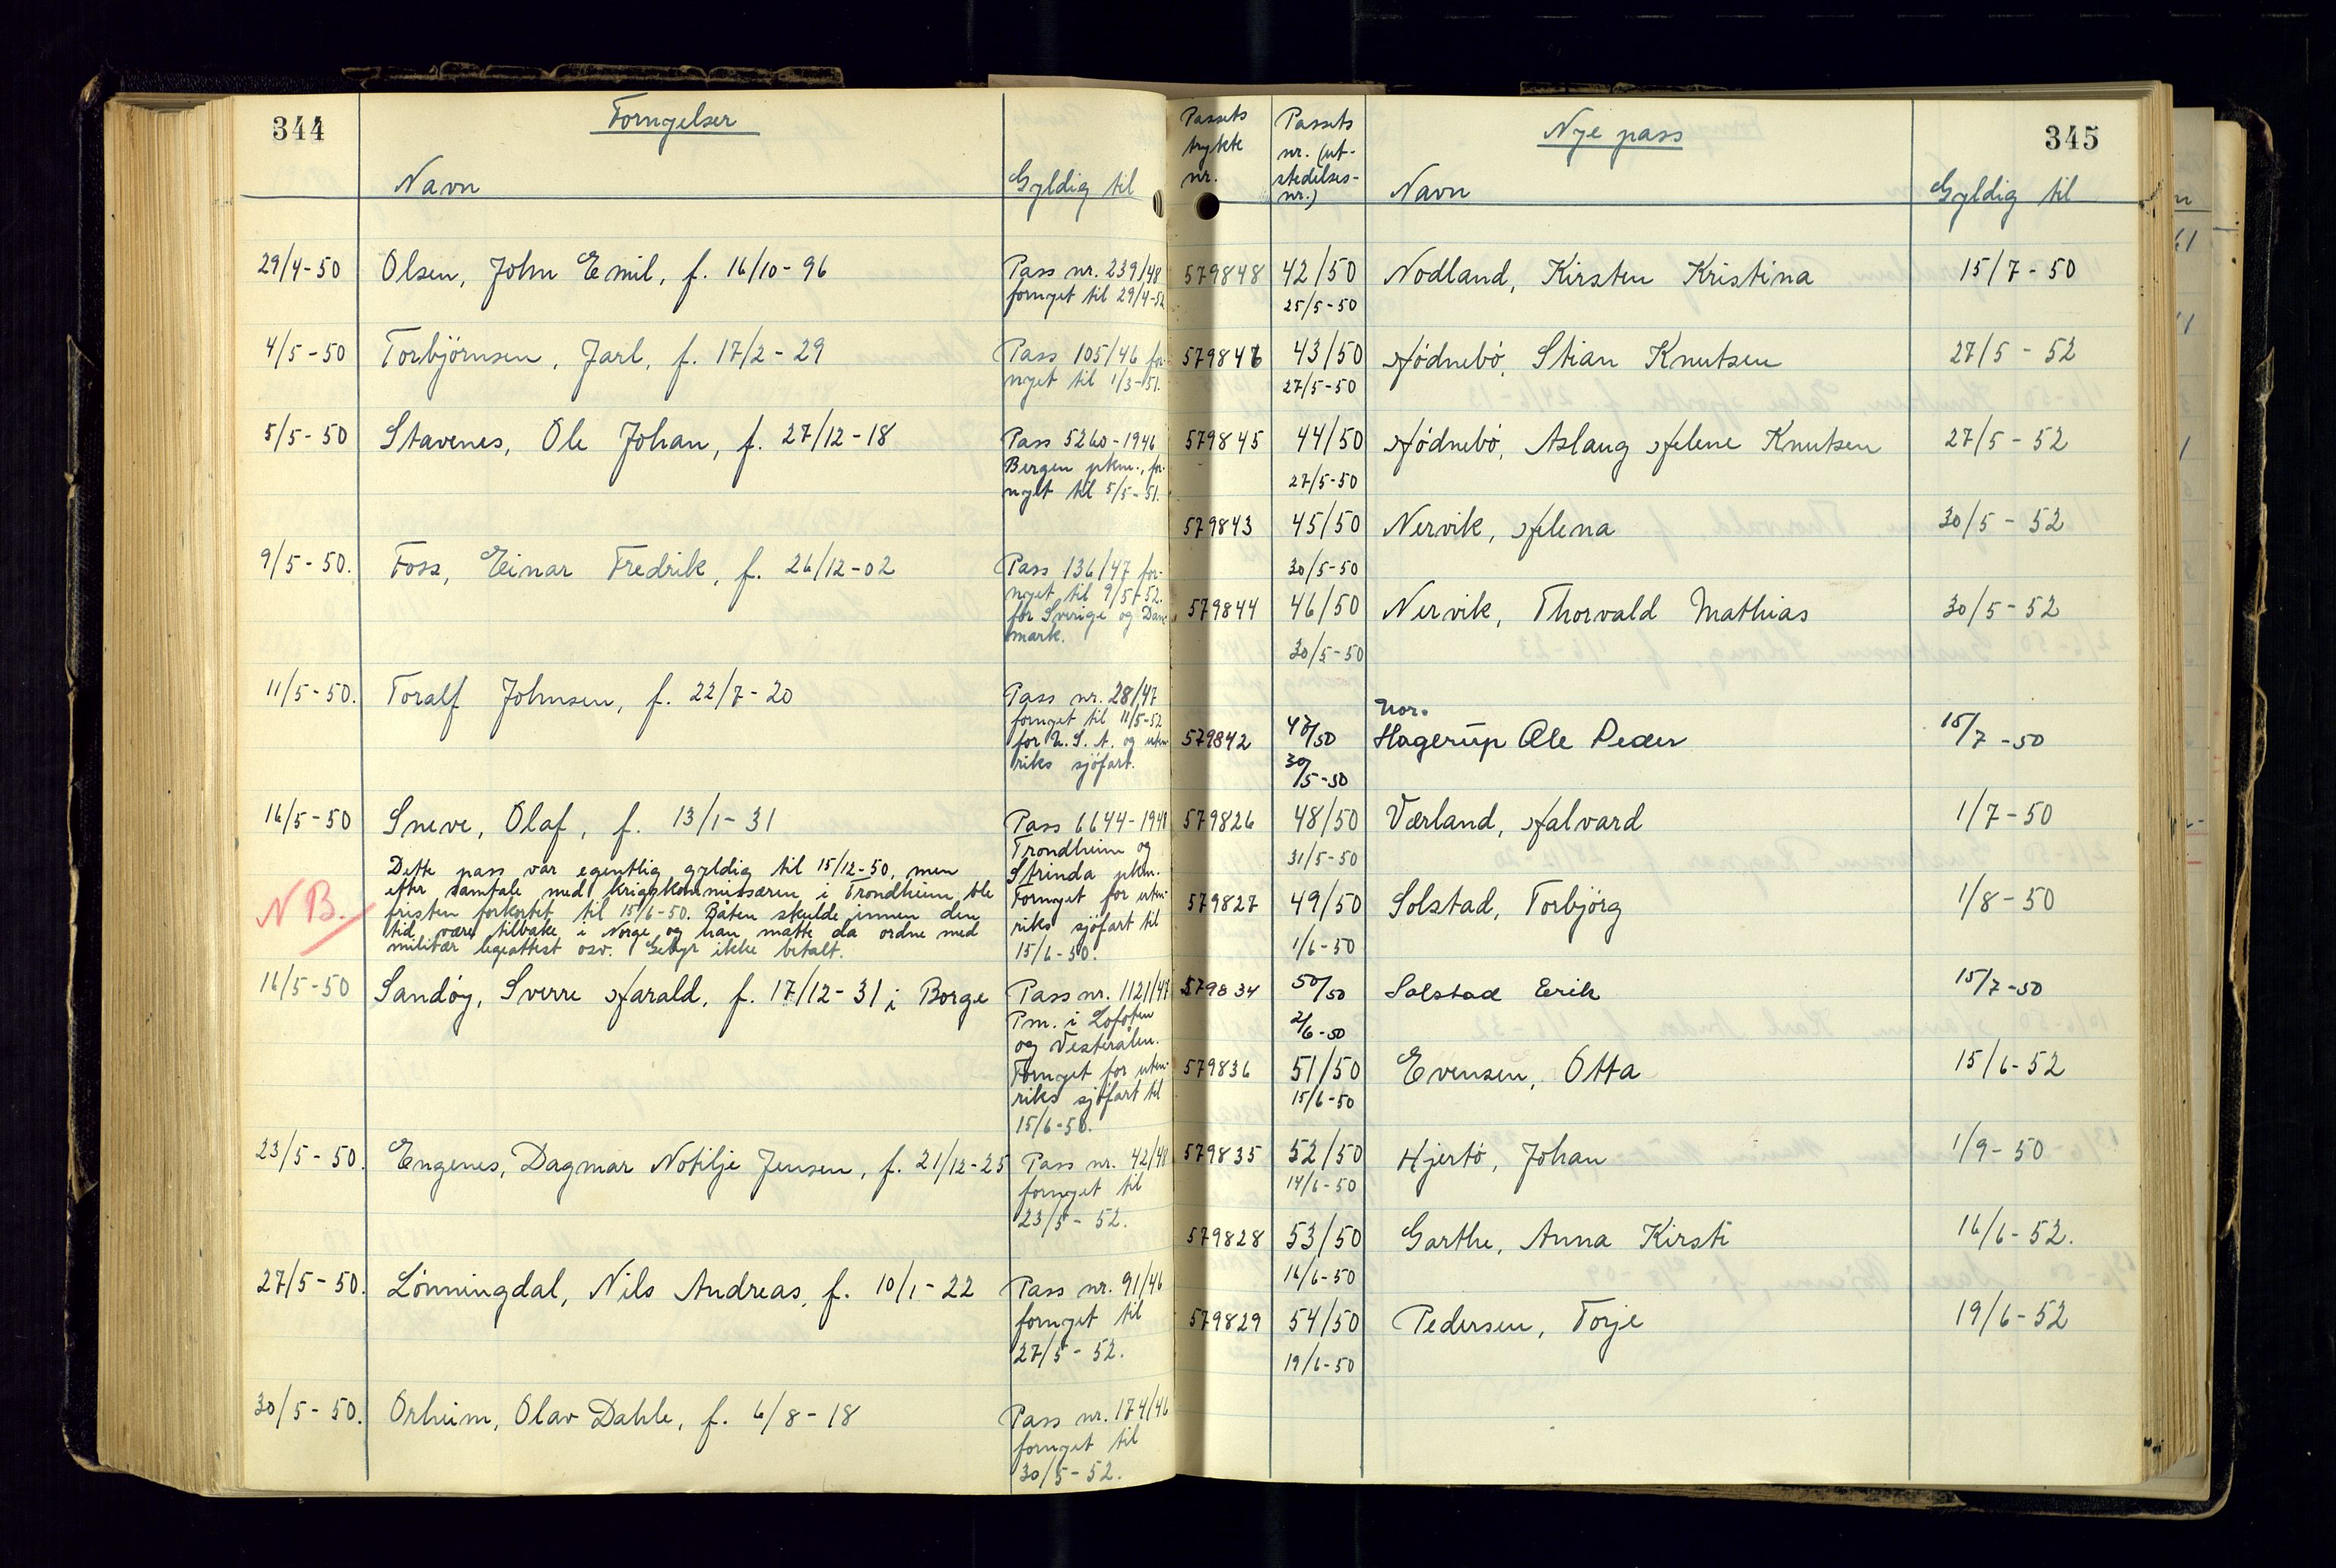 344
Fornyelser
Navn
Gyldig til
29/4-50 Olsen, John Emil, f. 16/10-96
Pass nr. 239/48
fornyet til 29/4-52
4/5-50 Torbjørnsen, Jarl, f. 17/2-29
Pass 105/46 for-
nyet til 1/3-51.
5/5-50 Stavenes, Ole Johan, f. 27/12-18
Pass 5260-1946
Bergen pkm., for-
nyet til 5/5-51.
9/5-50. Foss, Einar Fredrik, f. 26/12-02
Pass 136/47 for-
nyet til 9/5-52.
for Sverige og Dan-
mark.
11/5-50. Toralf Johnsen, f. 22/7-20
Pass nr. 28/47
fornyet til 11/5-52
for U.S.A. og uten-
riks sjøfart.
16/5-50 Sneve, Olaf, f. 13/1-31
Pass 6644-1948
Trondheim og
Strinda pkm.
Fornyet for uten-
riks sjøfart til
15/6-50.
NB.
Dette pass var egentlig gyldig til 15/12-50, men
efter samtale med krigskommissæren i Trondheim ble
fristen forkortet til 15/6-50. Båten skulde innen den
tid være tilbake i Norge og han måtte da ordne med
militær legeattest osv. Gebyr ikke betalt.
16/5-50 Sandøy, Sverre Harald, f. 17/12-31 i Borge
Pass nr. 1121/47
Pm. i Lofoten
og Vesterålen.
Fornyet for uten-
riks sjøfart til
15/6-50.
23/5-50. Engenes, Dagmar Notilje Jensen, f. 21/12-25
Pass nr. 42/48
fornyet til
23/5-52.
27/5-50. Lønningdal, Nils Andreas, f. 10/1-22
Pass nr. 91/46
fornyet til
27/5-52.
30/5-50. Orheim, Olav Dahle, f. 6/8-18
Pass nr. 174/46
fornyet til
30/5-52.
345
Nye pass
Passets
trykte
nr.
Passets
nr. (ut-
stedelses-
nr.)
Navn
Gyldig til
579848 42/50 Nodland, Kirsten Kristina 15/7-50
25/5-50
579846 43/50 Hødnebø, Stian Knutsen 27/5-52
27/5-50
579845 44/50 Hødnebø, Aslaug Helene Knutsen 27/5-52
27/5-50
579843 45/50 Nervik, Helena 30/5-52
30/5-50
579844 46/50 Nervik, Thorvald Mathias 30/5-52
30/5-50
nor.
579842 47/50 Hagerup Ole Peder 15/7-50
30/5-50
579826 48/50 Værland, Halvard 1/7-50
31/5-50
579827 49/50 Solstad, Torbjørg 1/8-50
1/6-50
579834 50/50 Solstad Erik 15/7-50
2/6-50
579836 51/50 Evensen, Otta 15/6-52
15/6-50
579835 52/50 Hjertø, Johan 1/9-50
14/6-50
579828 53/50 Garthe, Anna Kirsti 16/6-52.
16/6-50
579829 54/50 Pedersen, Torje 19/6-52
19/6-50